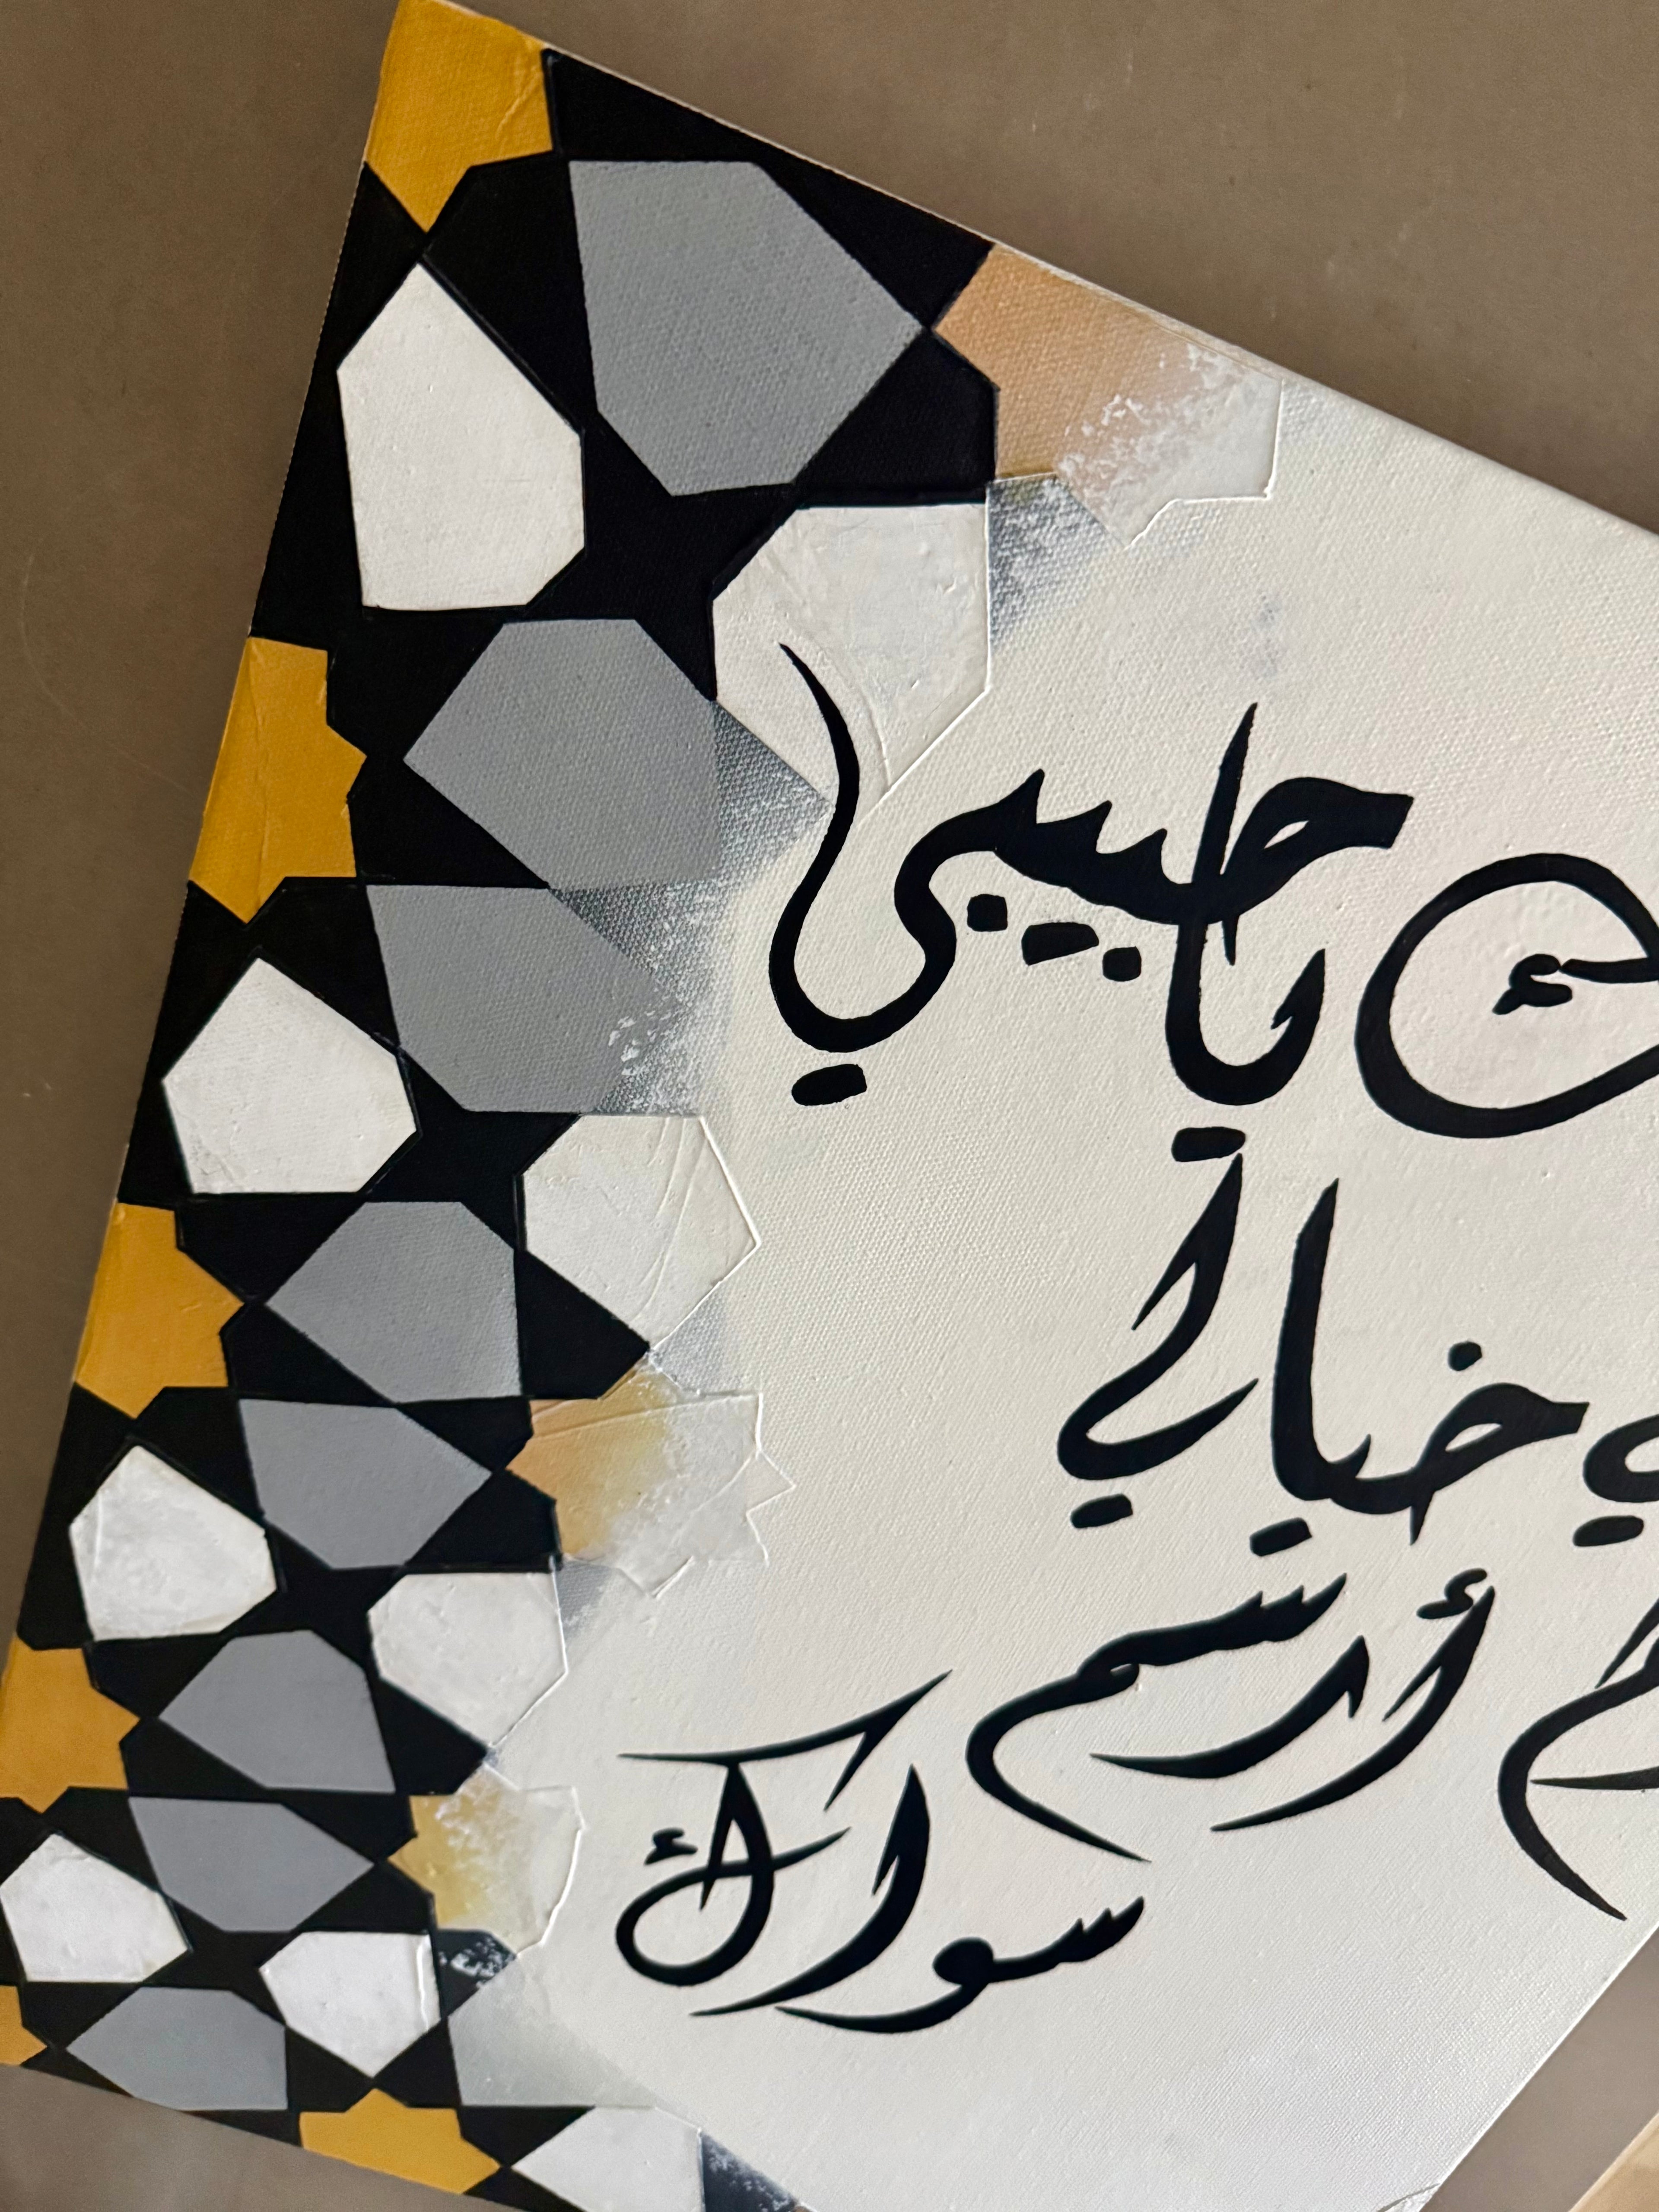 يا حبيبي
خيالي
أرسم
سواك